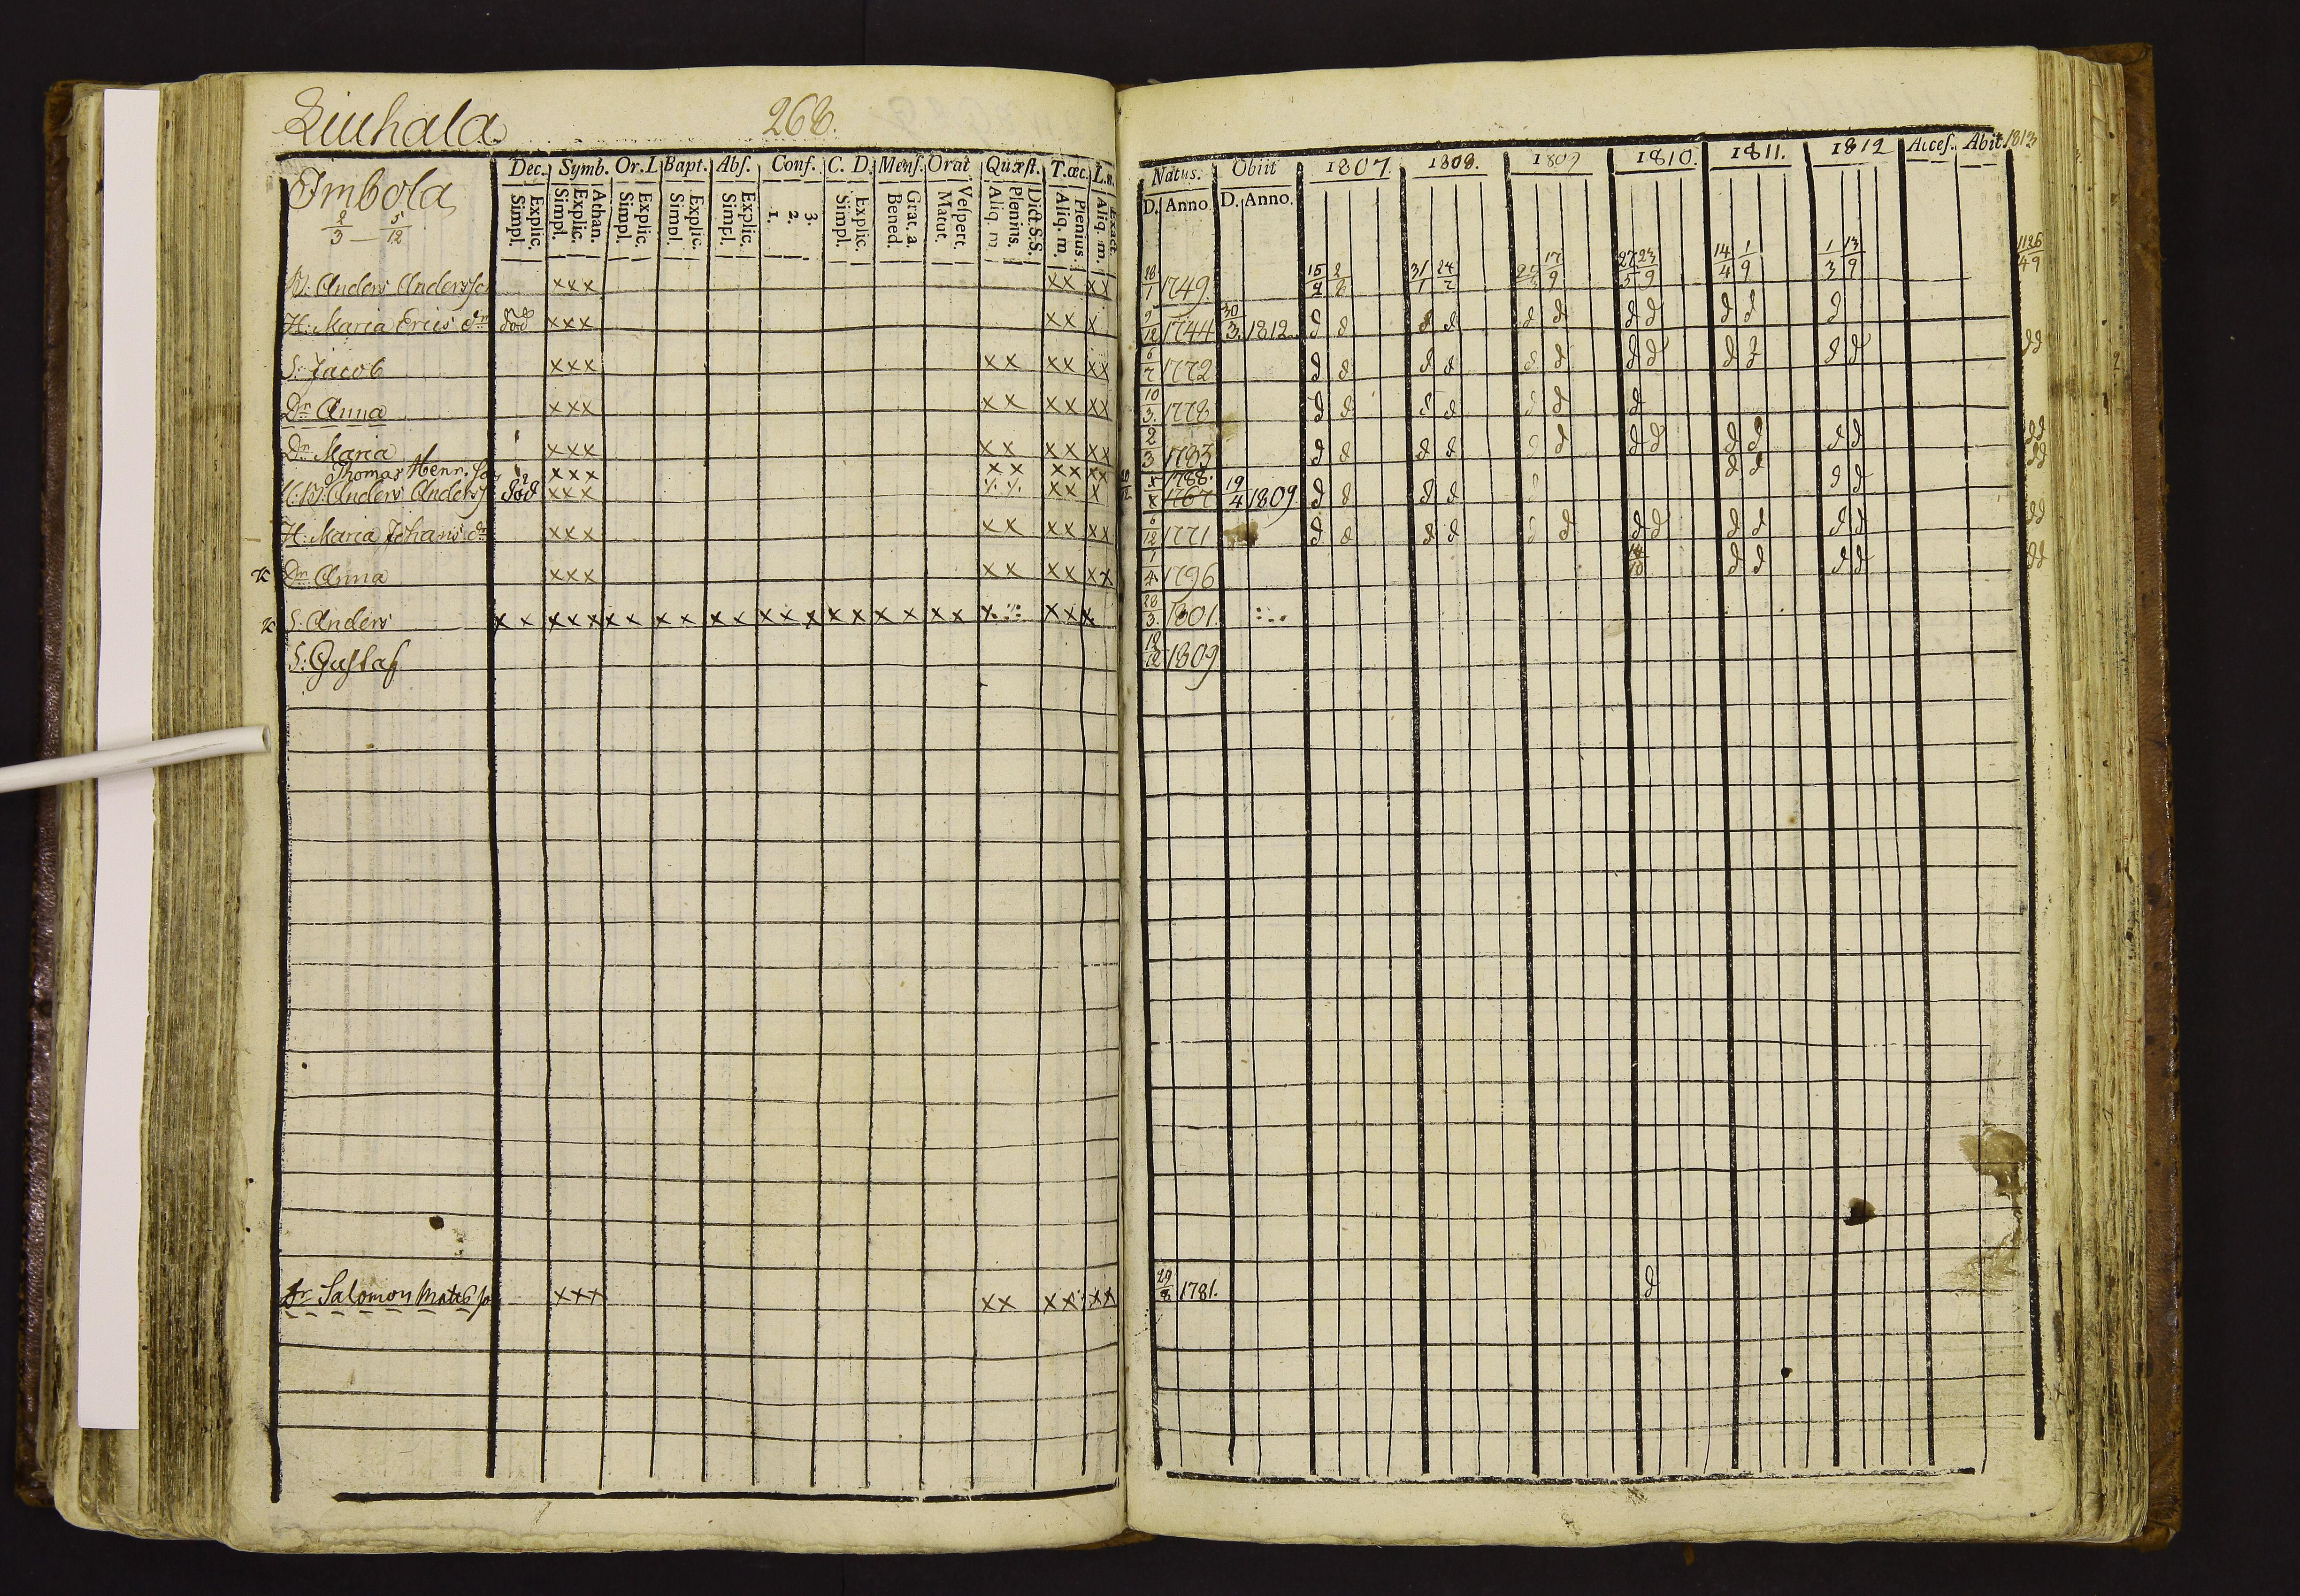 Liuhala 268.
Imbola
2/3 — 5/12
Dec. Symb. Or. L Bapt. Abſ. Conf. C. D. Menſ. Orat. Quæſt. T. œc. L.n.
Explic. Simpl. Athan. Explic. Simpl. Explic. Simpl. Explic. Simpl. Explic. Simpl. 3. 2. 1. Explic. Simpl. Grat. a. Bened. Veſpert. Matut. Dict. S.S. Plenius. Aliq. m. Plenius. Aliq. m. Exact. Aliq. m.
B: Anders Andersſon xxx xx xx
H: Maria Erics dr död xxx xx x
S: Jacob xxx xx xx xx
Dr Anna xxx xx xx xx
Dr Maria xxx xx xx xx
Thomas Henr. ſon xxx xx xx xx
Anders Andersſ död xxx xx x
H: Maria Johans dr xxx xx xx xx
Dr Anna xxx xx xx xx
S: Anders x x xxx x x x x x x x x x x x x x x x x xxx
S: Guſtaf
Dr Salomon Mats ſon xxx xx xx xx
Natus. Obiit 1807. 1808. 1809 1810. 1811. 1812 Acceſ. Abit 1813
D. Anno D. Anno.
28/1 1749. 31/1 17/9 27/5 23/9 14/4 1/9 1/3 13/9
9/12 1744 30/3 1812 d d d d d d d d d d d
6/7 1772 d d d d d d d d d d d d d d
10/3 1778 d d d d d d d
2/3 1783 d d d d d d d d d d d d d d
1788. d d d d d d
1767 19/4 1809 d d d d d
6/12 1771 d d d d d d d d d d d d d d
1/4 1796 14/10 d d d d d d
28/3 1801.
1809
29/8 1781. d